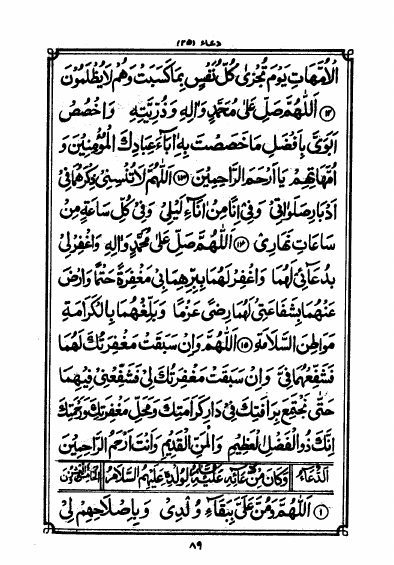 دعاء (٢٥)
الْاُمَّهَاتِ يَوْمَ تُجْزٰى كُلُّ نَفْسٍ بِمَا كَسَبَتْ وَهُمْ لَا يُظْلَمُوْنَ
اَللّٰهُمَّ صَلِّ عَلٰى مُحَمَّدٍ وَاٰلِهٖ وَذُرِّيَّتِهٖ وَاخْصُصْ
اَبَوَيَّ بِاَفْضَلِ مَا خَصَصْتَ بِهٖ اٰبَآءَ عِبَادِكَ الْمُؤْمِنِيْنَ وَ
اُمَّهَاتِهِمْ يَا اَرْحَمَ الرَّاحِمِيْنَ (١٣) اَللّٰهُمَّ لَا تُنْسِنِيْ ذِكْرَهُمَا فِيْ
اَدْبَارِ صَلَوَاتِيْ وَفِيْ اِنًا مِنْ اٰنَآءِ لَيْلِيْ وَفِيْ كُلِّ سَاعَةٍ مِنْ
سَاعَاتِ نَهَارِيْ (١٤) اَللّٰهُمَّ صَلِّ عَلٰى مُحَمَّدٍ وَاٰلِهٖ وَاغْفِرْ لِيْ
بِدُعَآئِيْ لَهُمَا وَاغْفِرْ لَهُمَا بِبِرِّهِمَا بِيْ مَغْفِرَةً حَتْمًا وَارْضَ
عَنْهُمَا بِشَفَاعَتِيْ لَهُمَا رِضًى عَزْمًا وَبَلِّغْهُمَا بِالْكَرَامَةِ
مَوَاطِنَ السَّلَامَةِ (١٥) اَللّٰهُمَّ وَاِنْ سَبَقَتْ مَغْفِرَتُكَ لَهُمَا
فَشَفِّعْهُمَا فِيَّ وَاِنْ سَبَقَتْ مَغْفِرَتُكَ لِيْ فَشَفِّعْنِيْ فِيْهِمَا
حَتّٰى نَجْتَمِعَ بِرَاْفَتِكَ فِيْ دَارِ كَرَامَتِكَ وَمَحَلِّ مَغْفِرَتِكَ وَرَحْمَتِكَ
اِنَّكَ ذُو الْفَضْلِ الْعَظِيْمِ وَالْمَنِّ الْقَدِيْمِ وَاَنْتَ اَرْحَمُ الرَّاحِمِيْنَ
اَلدُّعَآءُ وَكَانَ مِنْ دُعَائِهِ عَلَيْهِ السَّلَامُ لِوُلْدِهِ عَلَيْهِمُ السَّلَامُ
(١) اَللّٰهُمَّ وَمُنَّ عَلَيَّ بِبَقَآءِ وُلْدِيْ وَبِاِصْلَاحِهِمْ لِيْ
٨٩